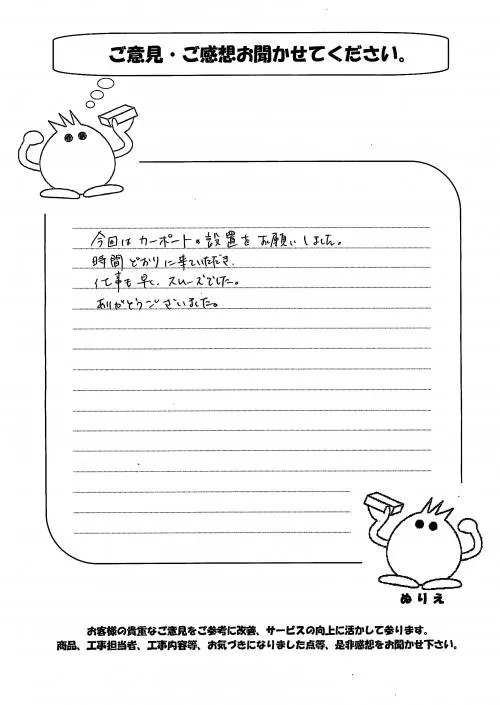 ご意見・ご感想お聞かせてください。
今回はカーポートの設置をお願いしました。
時間どおりに来ていただき、
仕事も早く、スムーズでした。
ありがとうございました。
ぬりえ
お客様の貴重なご意見をご参考に改善、サービスの向上に活かして参ります。
商品、工事担当者、工事内容等、お気づきになりました点等、是非感想をお聞かせ下さい。